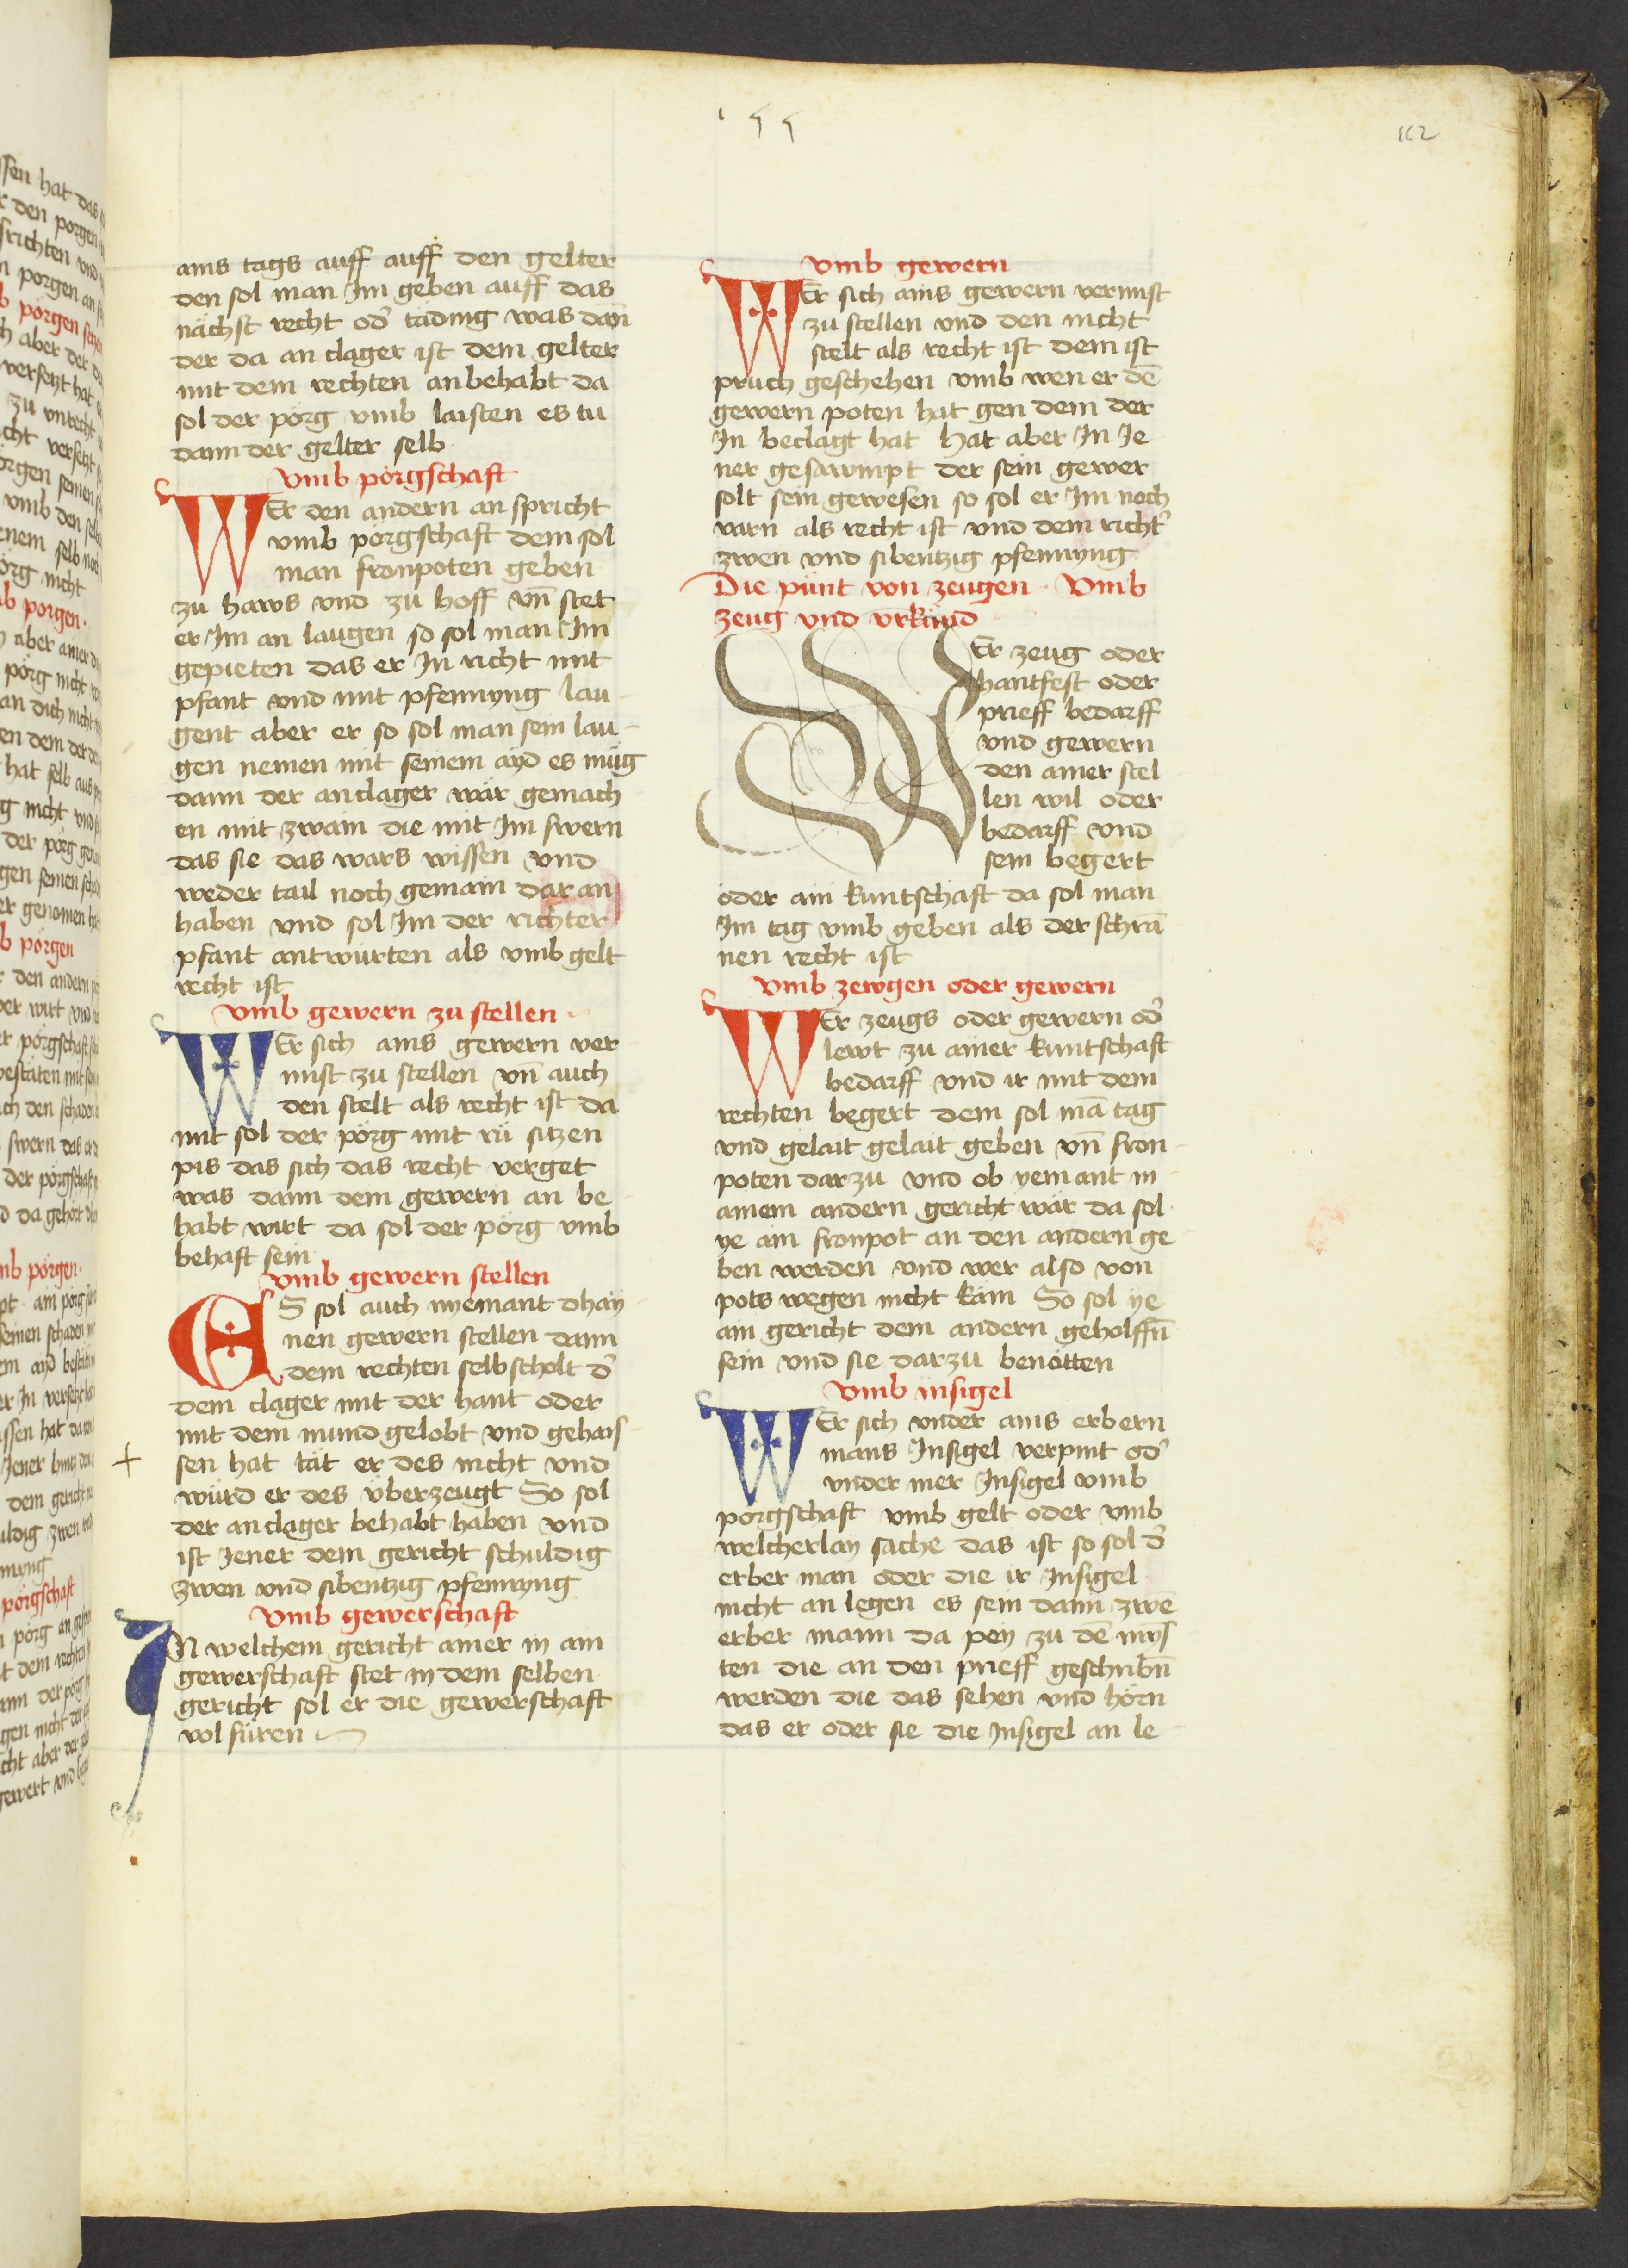 155
162
ains tags auff auff den gelter
den sol man Im geben auff das
nächst recht od̉ tading was dan̄
der da an clager ist dem gelter
mit dem rechten an behabt da
sol der pörg vmb laisten es tu
dann der gelter selb
vmb pörgschaft
WEr den andern an spricht
vmb porgschaft dem sol
man fronpoten geben
zu haws vnd zu hoff vn̄ stet
er Im an laugen so sol man Im
gepieten das er In richt mit
pfant vnd mit pfennyng lau
gent aber er so sol man sein lau-
gen nemen mit seinem ayd es müg
dann der anclager wär gemach
en mit zwain die mit Im swern
das sie das wars wissen vnd
weder tail noch gemain dar an
haben vnd sol Im der richter
pfant antwürten als vmb gelt
recht ist
vmb gewern zu stellen
WEr sich ains gewern ver
nnst zu stellen vn̄ auch
den stelt als recht ist da
mit sol der pörg mit rü sitzen
pis das sich das recht verget
was dann dem gewern an be
habt wirt da sol der pörg vmb
behaft sein
vmb gewern stellen
ES sol auch nyemant dhay
nen gewern stellen dann
dem rechten selbscholt d̉
dem clager mit der hant oder
mit dem mund gelobt vnd gehais
+ sen hat tät er des nicht vnd
würd er des vberzeugt So sol
der anclager behabt haben vnd
ist Jener dem gericht schuldig
zwen vnd sibentzig pfennyng
vmb gewerschaft
IN welchem gericht ainer in ain
gewerschaft stet in dem selben
gericht sol er die gewerschaft
vol füren
vmb gewern
WEr sich ains gewern vernnst
zu stellen vnd den nicht
stelt als recht ist dem ist
pruch geschehen vmb wen er dē
gewern poten hat gen dem der
In beclagt hat hat aber In Je
ner gesawmpt der sein gewer
solt sein gewesen so sol er Im noch
varn als recht ist vnd dem richt̉
zwen vnd sibentzig pfennyng
Die pünt von zeugen · Vmb
zeug vnd vrkünd
WEr zeug oder
hantfest oder
prieff bedarff
vnd gewern
den ainer stel
len wil oder
bedarff vnd
sein begert
oder ain kuntschaft da sol man
Im tag vmb geben als der schrā
nen recht ist
vmb zewgen oder gewern
WEr zeugs oder gewern od̉
lewt zu ainer kuntschaft
bedarff vnd ir mit dem
rechten begert dem sol mā tag
vnd gelait gelait geben vn̄ fron
poten dar zu vnd ob yemant in
ainem andern gericht wär da sol
ye ain fronpot an den andern ge
ben werden vnd wer also von
pots wegen nicht käm So sol ye
ain gericht dem andern geholffn̄
sein vnd sie darzu benötten
vmb insigel
WEr sich vnder ains erbern
mans Insigel verpint od̉
vnder mer Insigel vmb
porgschaft vmb gelt oder vmb
welcherlay sache das ist so sol d̉
erber man oder die ir Insigel
nicht an legen es sein dann zwē
erber mann da pey zu dē mys
ten die an den prieff geschribn̄
werden die das sehen vnd hörn
das er oder sie die Insigel an le